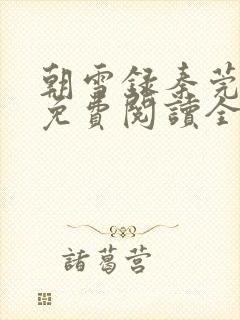 朝雪録秦莞
免費閱讀全
諸葛营